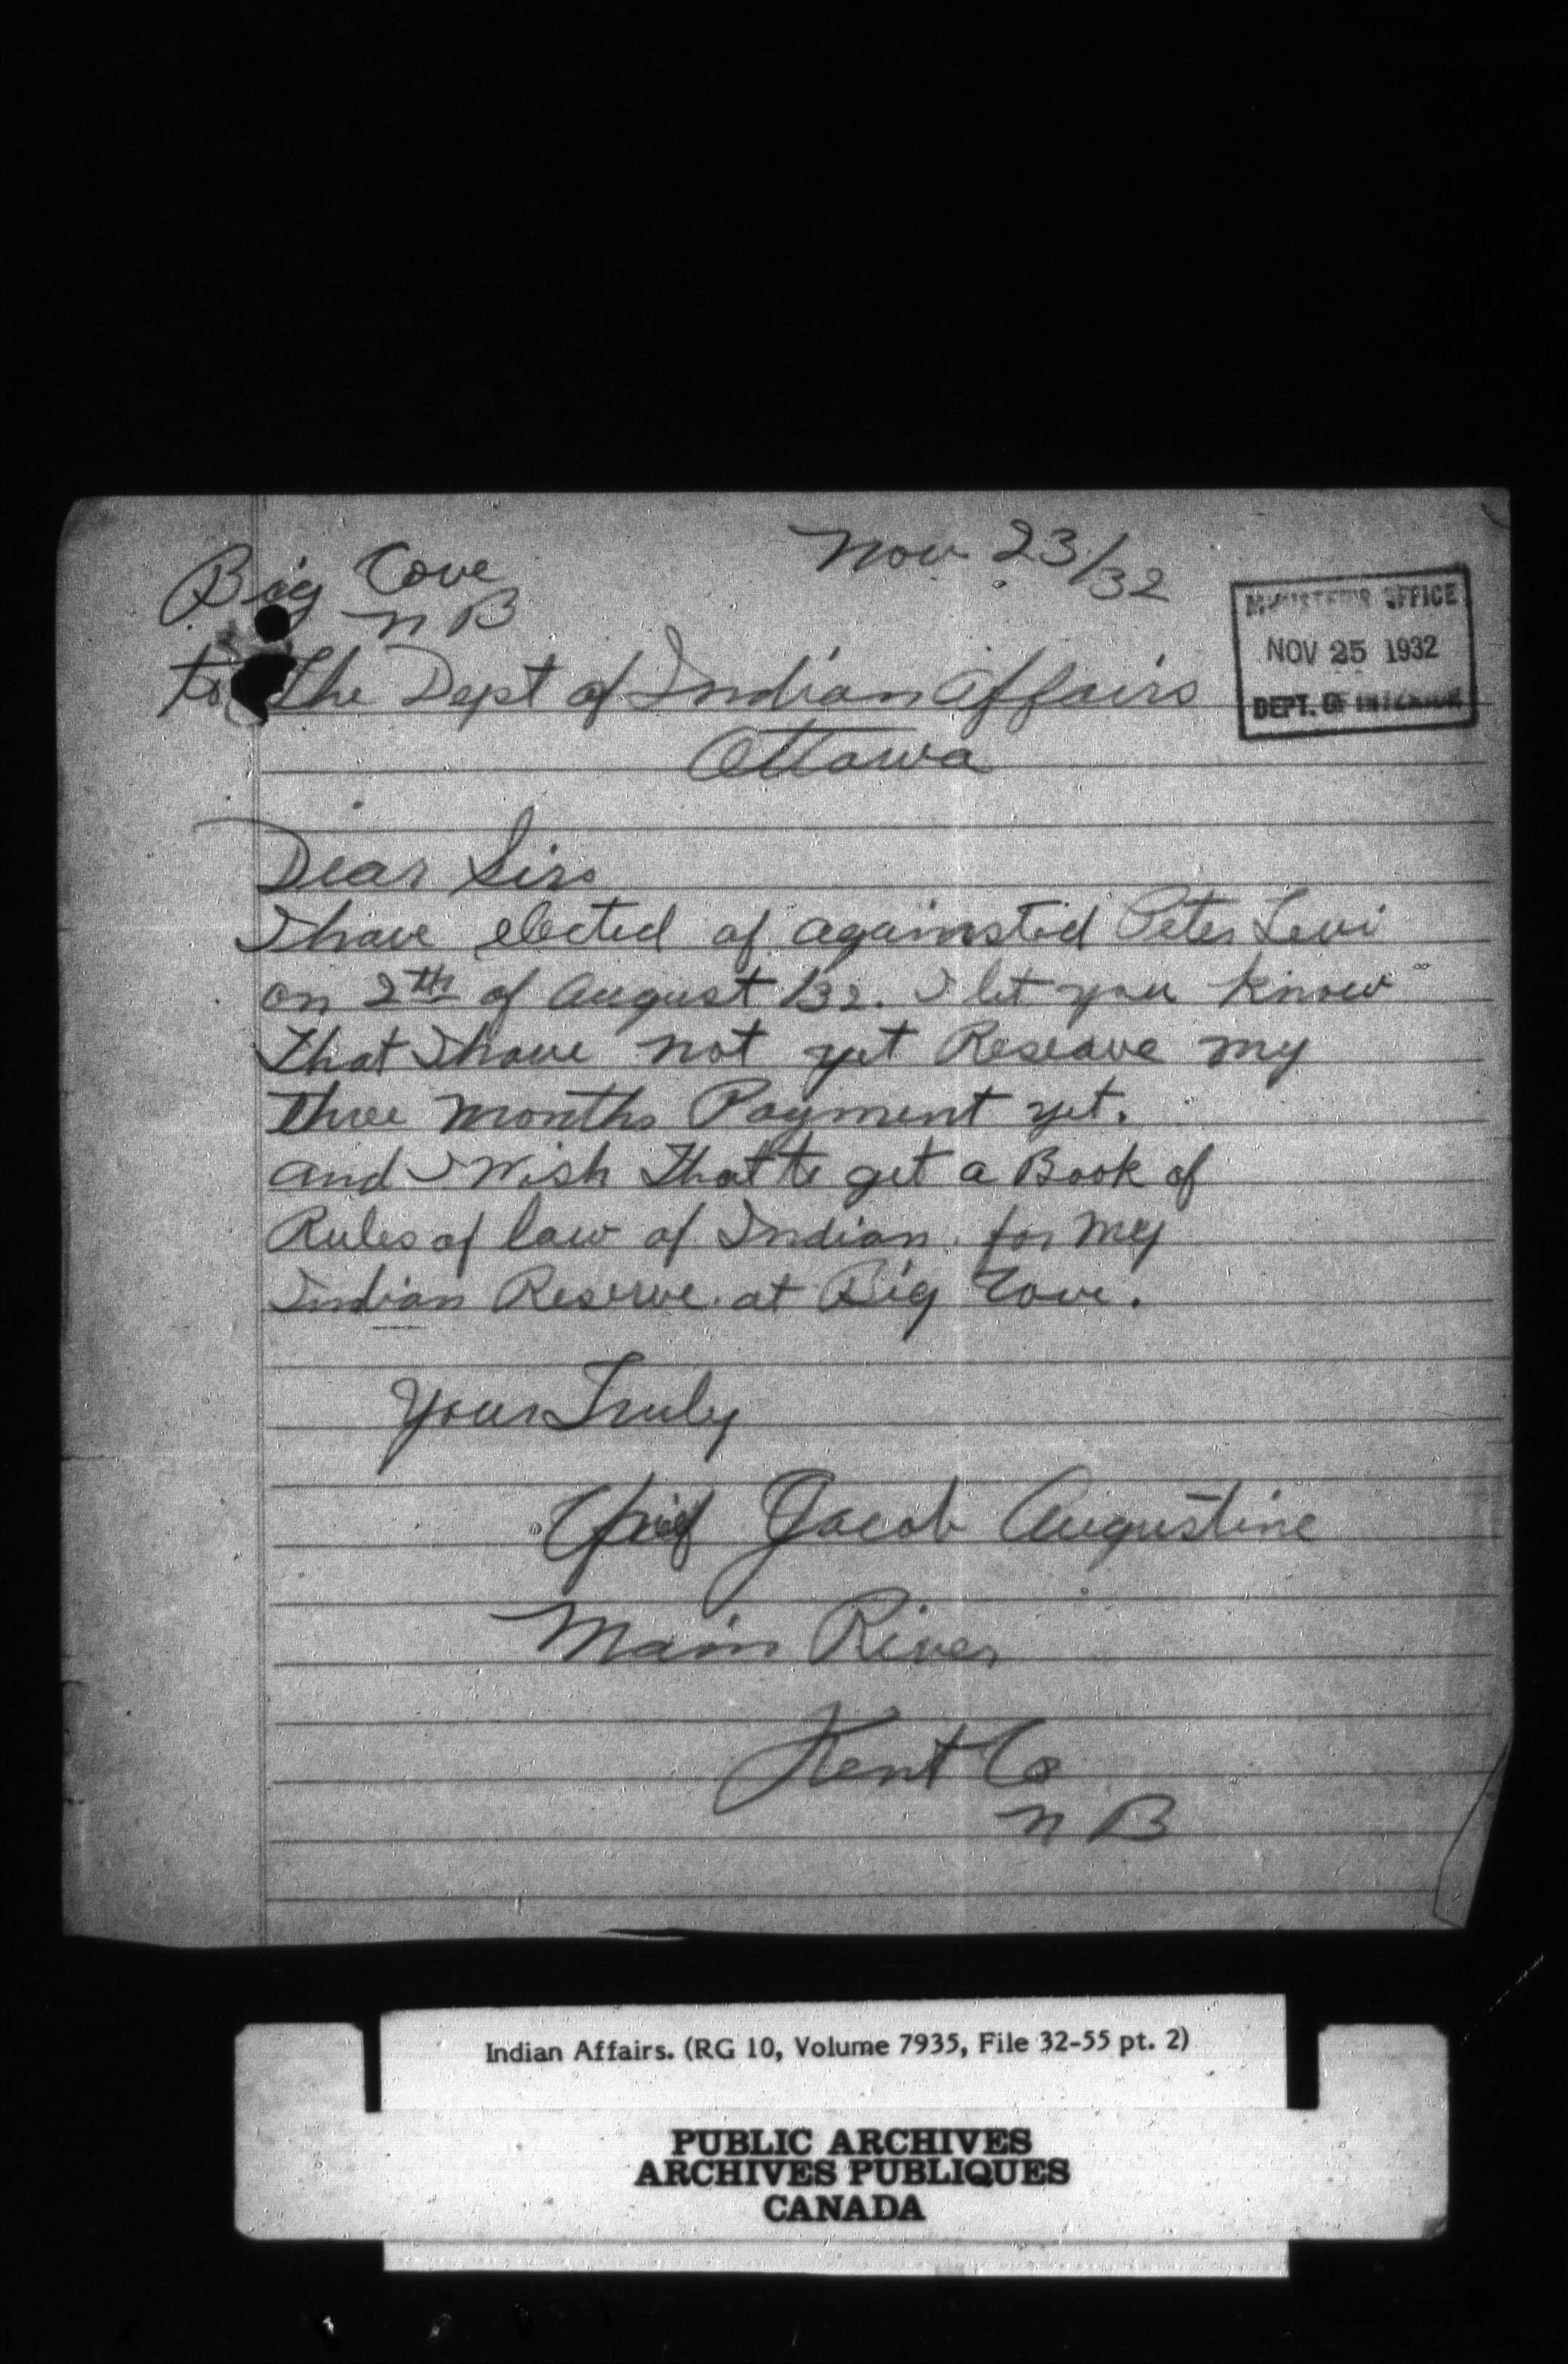 Big Cove
N B
Nov 23/32
MINISTER'S OFFICE
NOV 25 1932
DEPT. OF INTERIOR
to The Dept of Indian Affairs
Ottawa
Dear Sirs
I have elected of againsted Peter Levi
on 2th of August /32. I let you know
that I have not yet Reseave my
three months Payment yet.
and I Wish That to get a Book of
Rules of law of Indian for my
Indian Reserve at Big Cove.
Your Truly
Chief Jacob Augustine
Main River
Kent Co
N B
Indian Affairs. (RG 10, Volume 7935, File 32-55 pt. 2)
PUBLIC ARCHIVES
ARCHIVES PUBLIQUES
CANADA